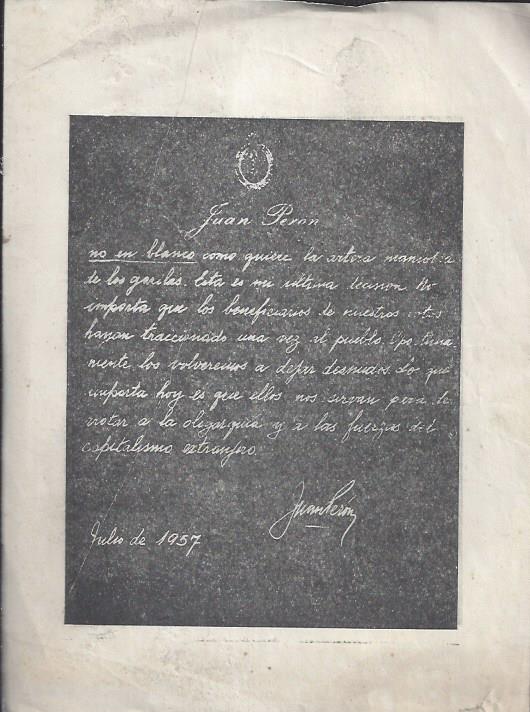 Juan Perón
no en blanco como quiere la artera maniobra
de los gorilas. Esta es mi última decisión. No
importa que los beneficiarios de nuestros votos
hayan traicionado una vez al pueblo. Oportuna
mente los volveremos a dejar desnudos. Lo que
importa hoy es que ellos nos sirvan para de
rrotar a la oligarquía y a las fuerzas del
capitalismo extranjero.
Juan Perón
Julio de 1957